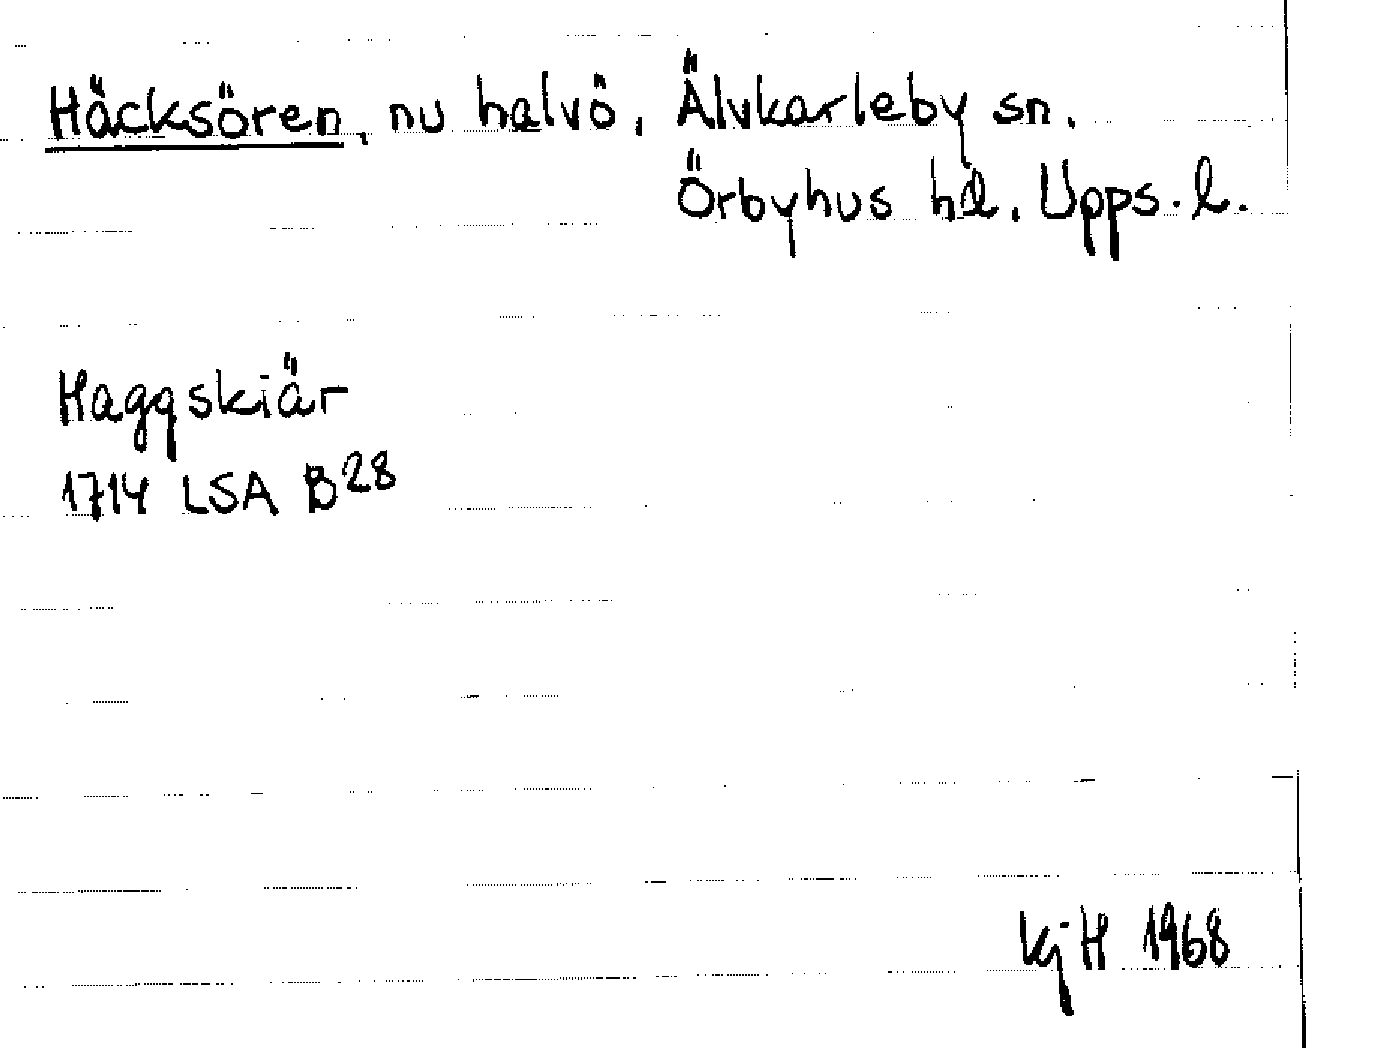 Häcksören, nu halvö, Älvkarleby sn.
Örbyhus hd. Upps. l.
Haggskiär
1714 LSA B28
kj H 1968